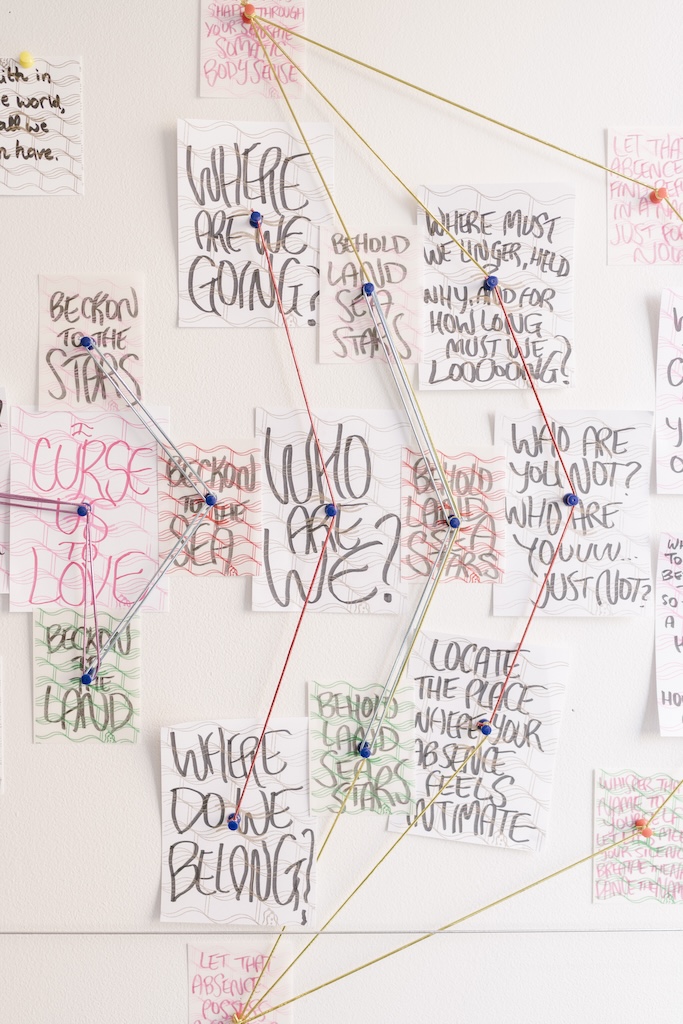 SHAPE THROUGH
YOUR
SOMATIC
BODY SENSE
ith in
e world,
all we
n have.
WHERE
ARE WE
GOING?
BEHOLD
LAND
SEA
STARS
WHERE MUST
WE LINGER, HELD
WHY, AND FOR
HOW LONG
MUST WE
LOOOOONG?
LET THAT
ABSENCE
FIND
IN A
JUST FOR
NOW
BECKON
TO THE
STARS
I
CURSE
US
TO
LOVE
BECKON
TO THE
SEA
WHO
ARE
WE?
BEHOLD
LAND
SEA
STARS
WHO ARE
YOU NOT?
WHO ARE
YOUUUU...
JUST NOT?
BECKON
TO THE
LAND
WHERE
DO WE
BELONG?
BEHOLD
LAND
SEA
STARS
LOCATE
THE PLACE
WHERE YOUR
ABSENCE
FEELS
INTIMATE
WHISPER THAT
NAME TO
YOURSELF
LET
YOUR SILENCE
BREATHE THE NAME
DANCE THE NAME
LET THAT
ABSENCE
POSSESS